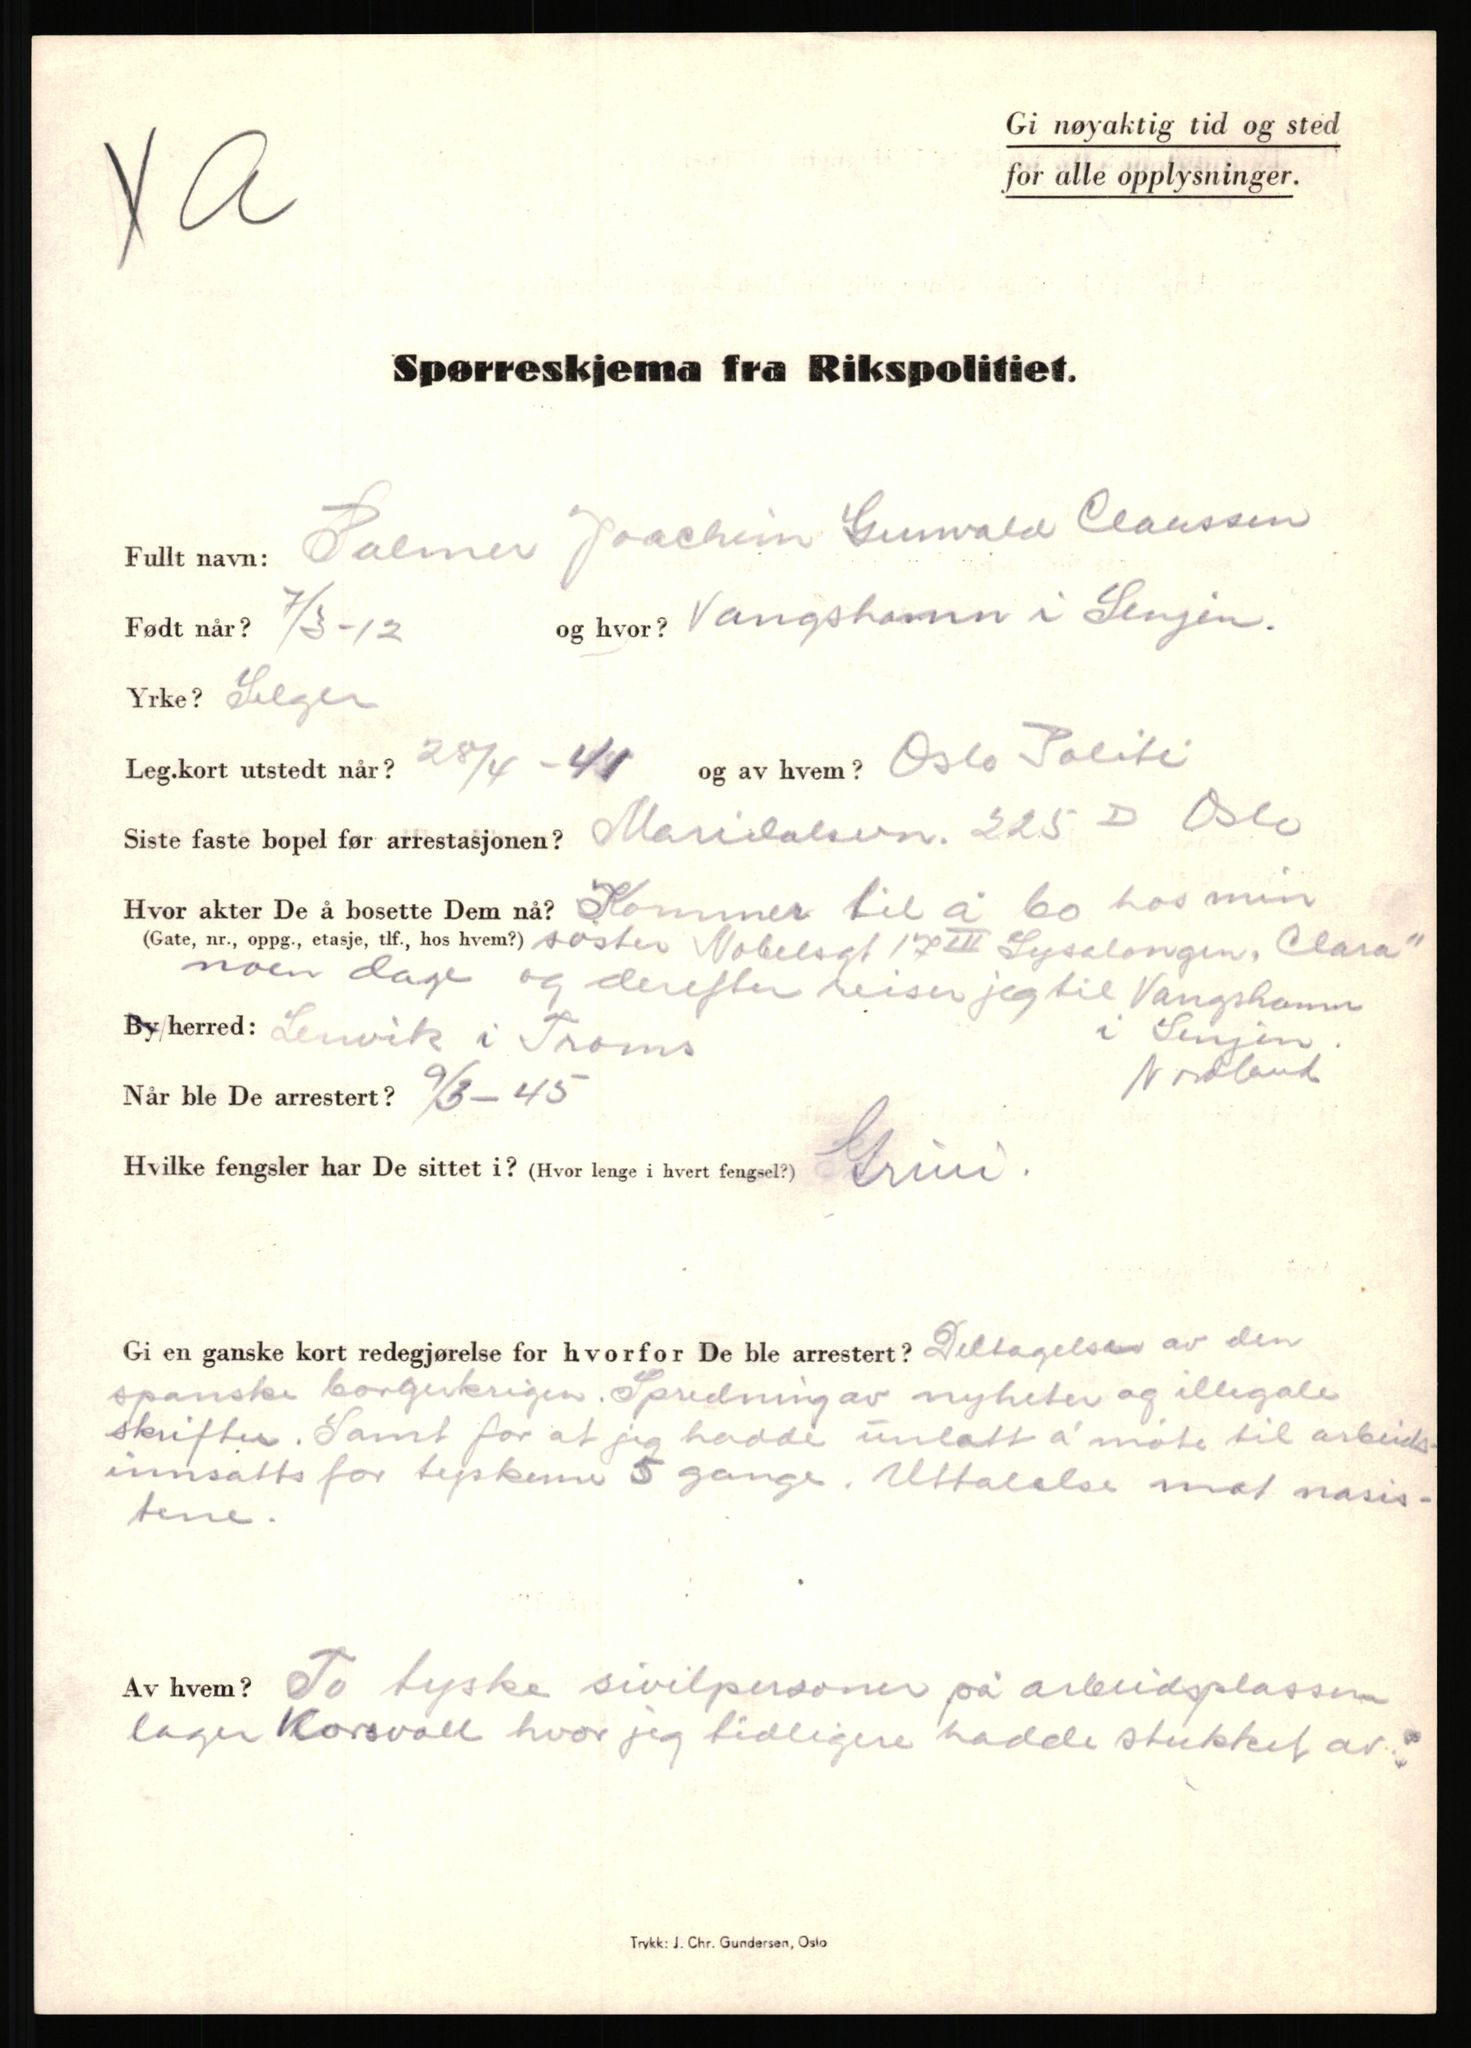 Gi nøyaktig tid og sted
for alle opplysninger.
X a
Spørreskjema fra Rikspolitiet.
Fullt navn: Palmer Joachim Gunvald Claussen
Født når? 7/3-12 og hvor? Vangshamn i Senjen.
Yrke? Selger
Leg.kort utstedt når? 28/4-41 og av hvem? Oslo Politi
Siste faste bopel før arrestasjonen? Maridalsvn. 225 D Oslo
Hvor akter De å bosette Dem nå? Kommer til å bo hos min
(Gate, nr., oppg., etasje, tlf., hos hvem?) søster Nobelsgt 17 III Lysalongen, Clara"
noen dage og derefter reiser jeg til Vangshamn
By/herred: Lenvik i Troms i Senjen.
Nordland
Når ble De arrestert? 9/3-45
Hvilke fengsler har De sittet i? (Hvor lenge i hvert fengsel?) Grini.
Gi en ganske kort redegjørelse for hvorfor De ble arrestert? Deltagelse av den
spanske borgerkrigen. Spredning av nyheter og illegale
skrifter. Samt for at jeg hadde unlatt å møte til arbeids-
innsatts for tyskerne 5 gange. Uttalelse mot nasis-
tene.
Av hvem? To tyske sivilpersoner på arbeidsplassen
lager Korsvoll hvor jeg tidligere hadde stukket av.
Trykk: J. Chr. Gundersen, Oslo